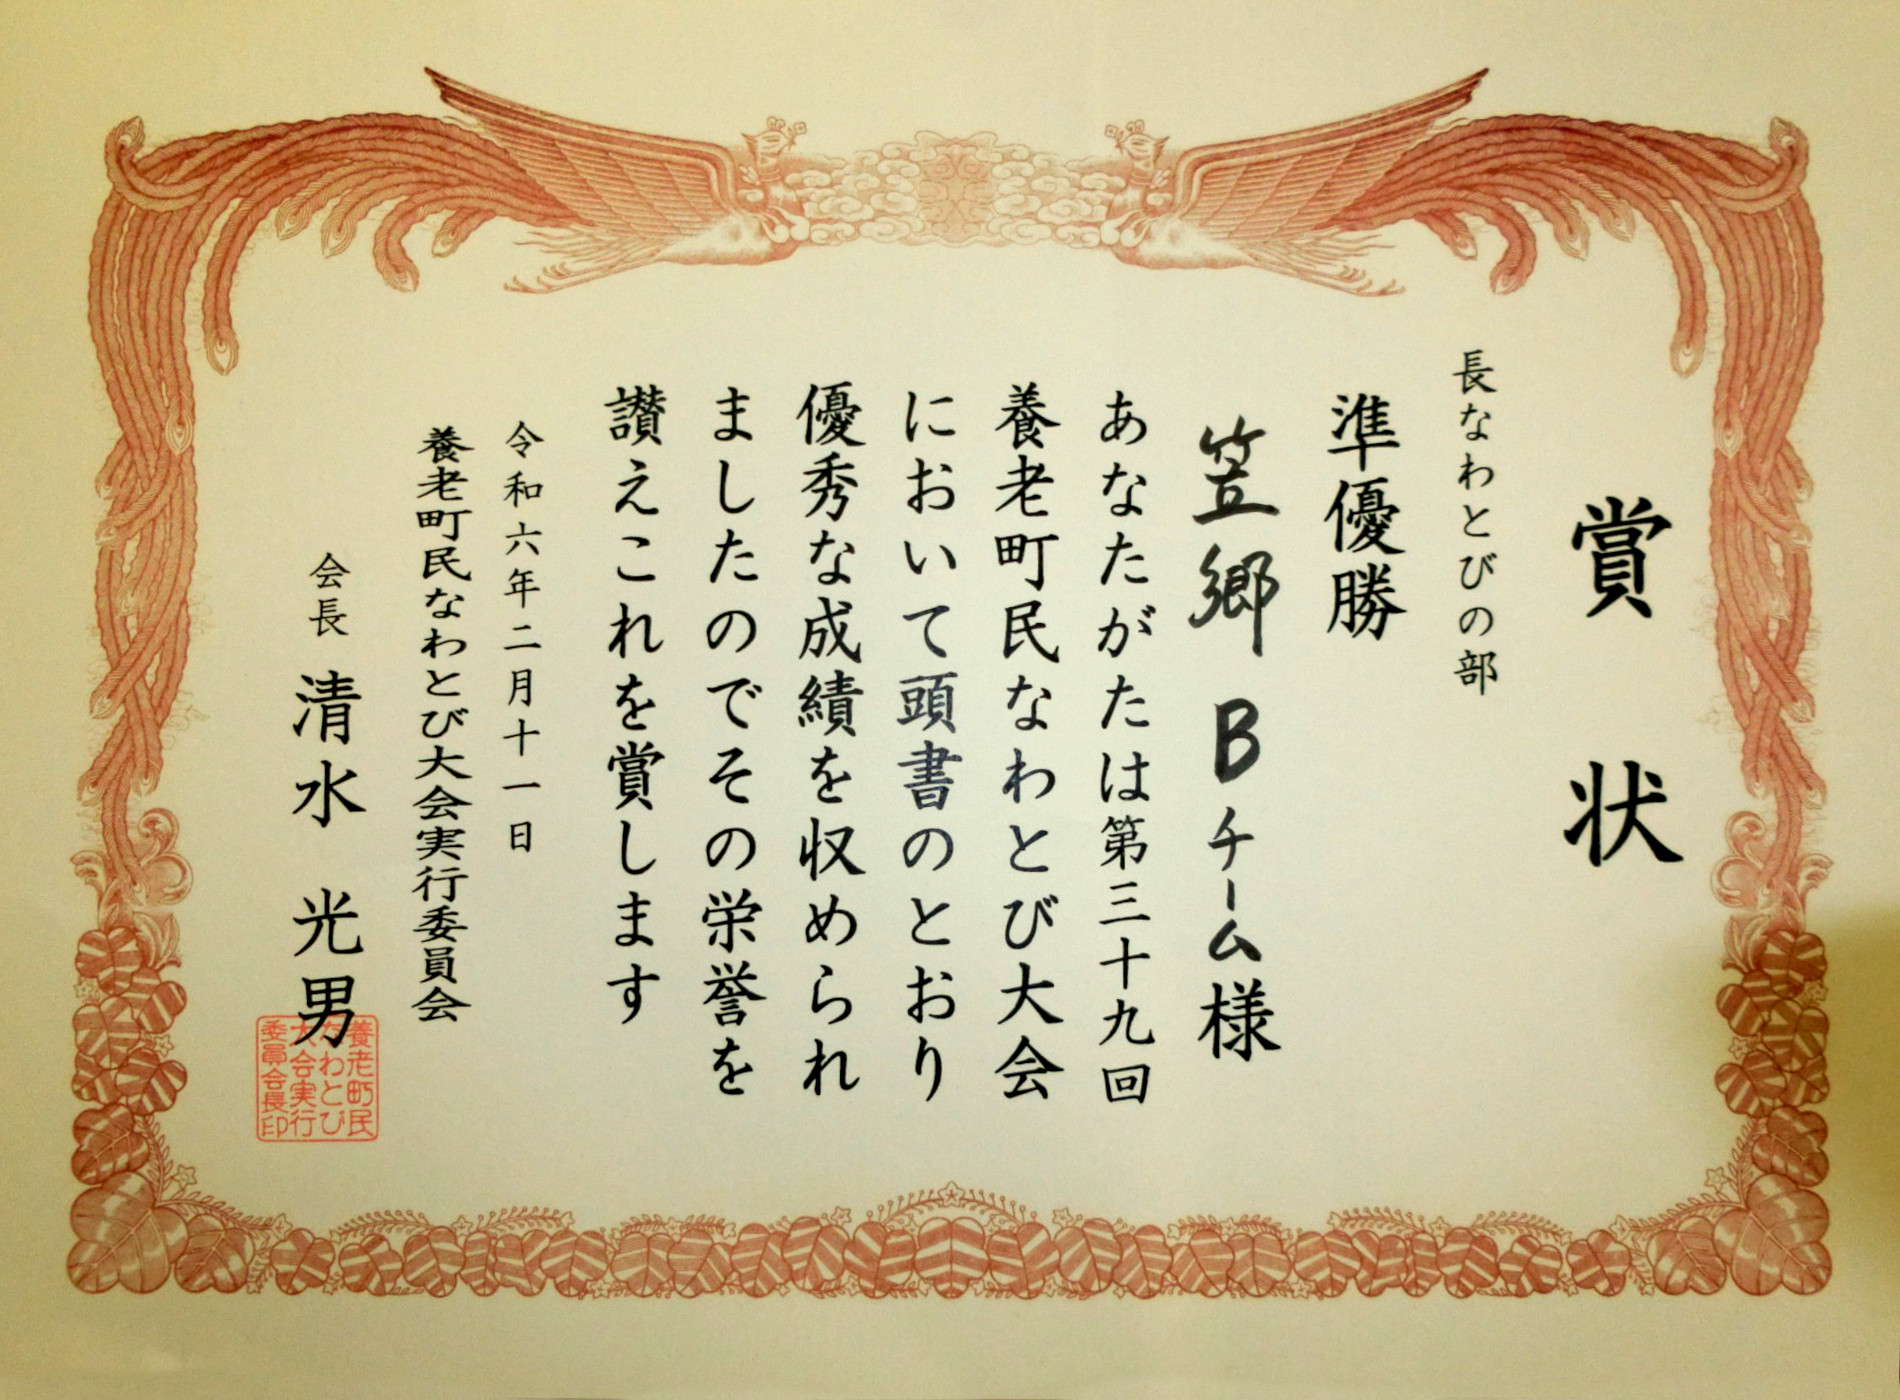 賞状
長なわとびの部
準優勝
笠郷Bチーム様
あなたがたは第三十九回
養老町民なわとび大会
において頭書のとおり
優秀な成績を収められ
ましたのでその栄誉を
讃えこれを賞します
令和六年二月十一日
養老町民なわとび大会実行委員会
会長 清水光男
養老町民
なわとび
大会実行
委員会長印